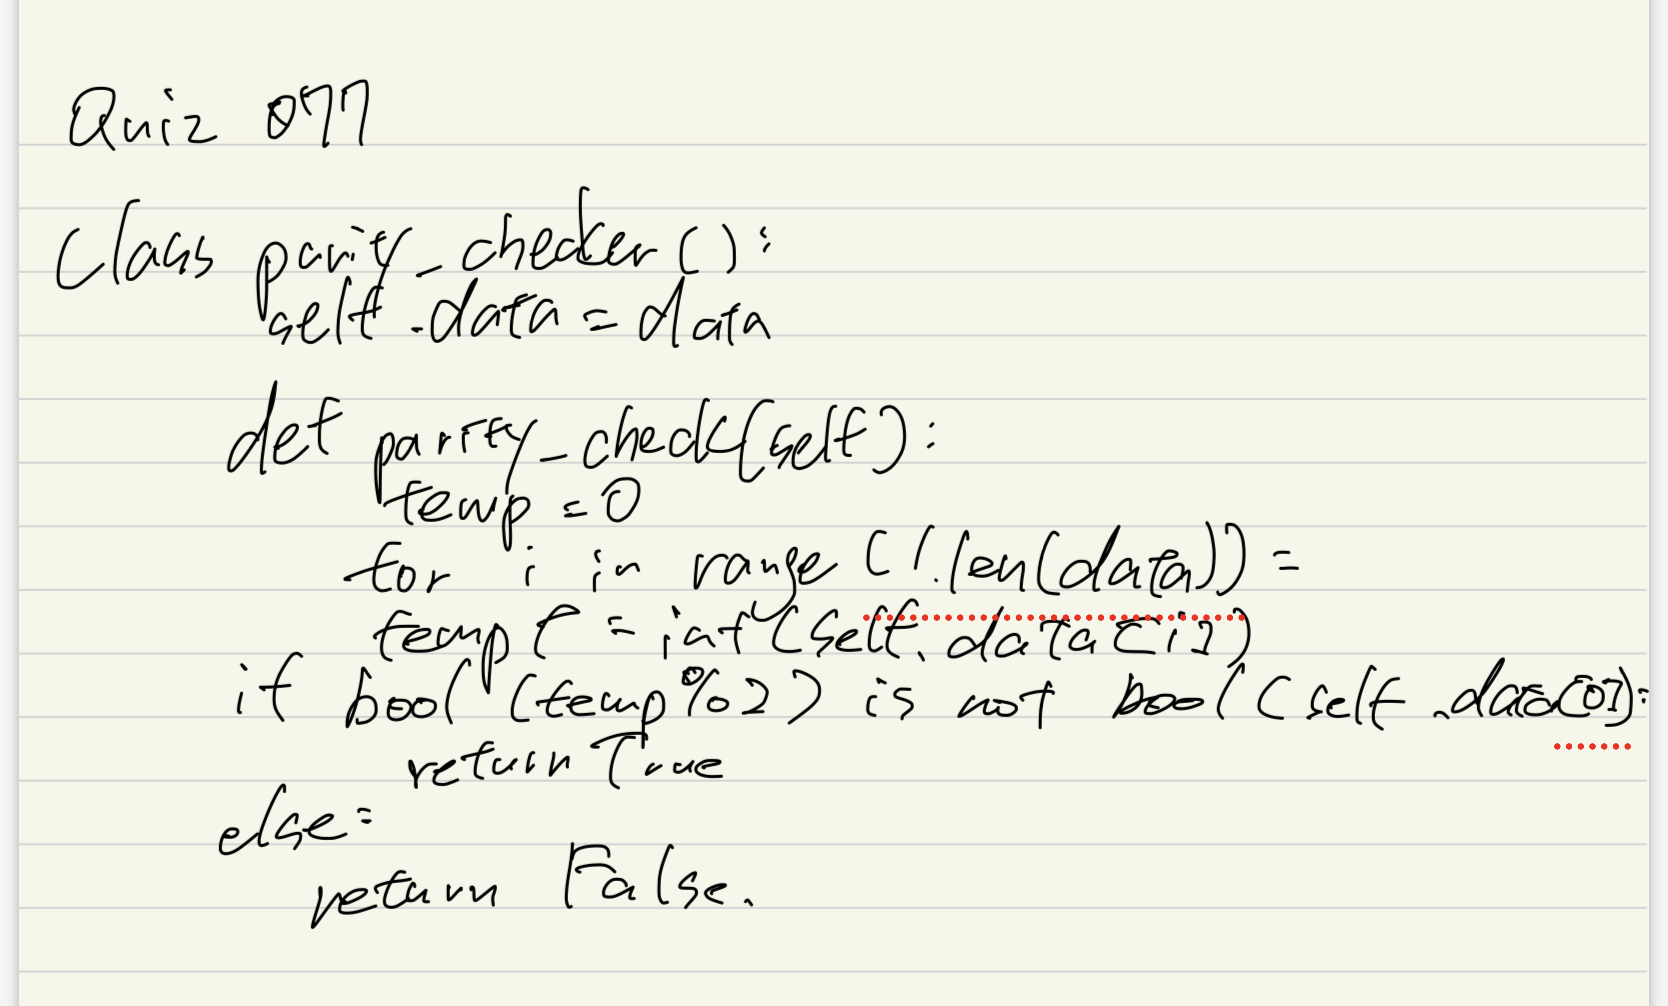 Quiz 077
Class parity_checker():
self.data = data
def parity_check(self):
temp = 0
for i in range (1.len(data)) =
temp t = int (self.data[i])
if bool (temp%2) is not bool (self.data[0]):
return True
else=
return False.